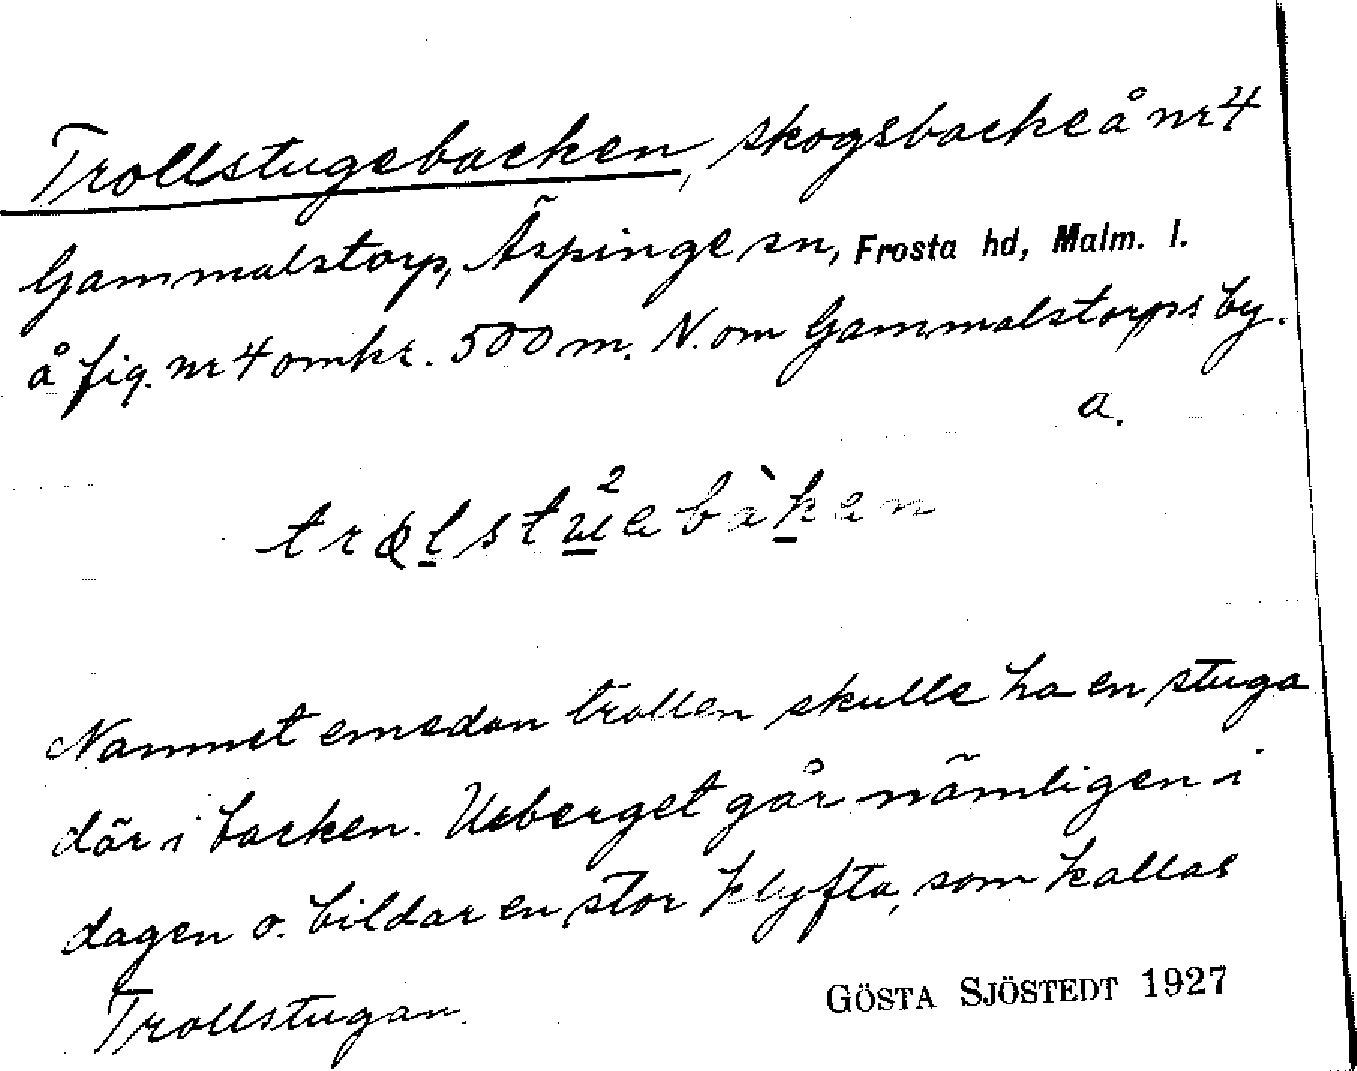 Trollstugebacken, skogsbacke å nr 4
Gammalstorp, Äspinge sn, Frosta hd, Malm. l.
å fig. nr 4 omkr. 500 m. N. om Gammalstorps by.
a.
Namnet emedan trollen skulle ha en stuga
där i backen. Urberget går nämligen i
dagen o. bildar en stor klyfta, som kallas
Trollstugan.
GÖSTA SJÖSTEDT 1927